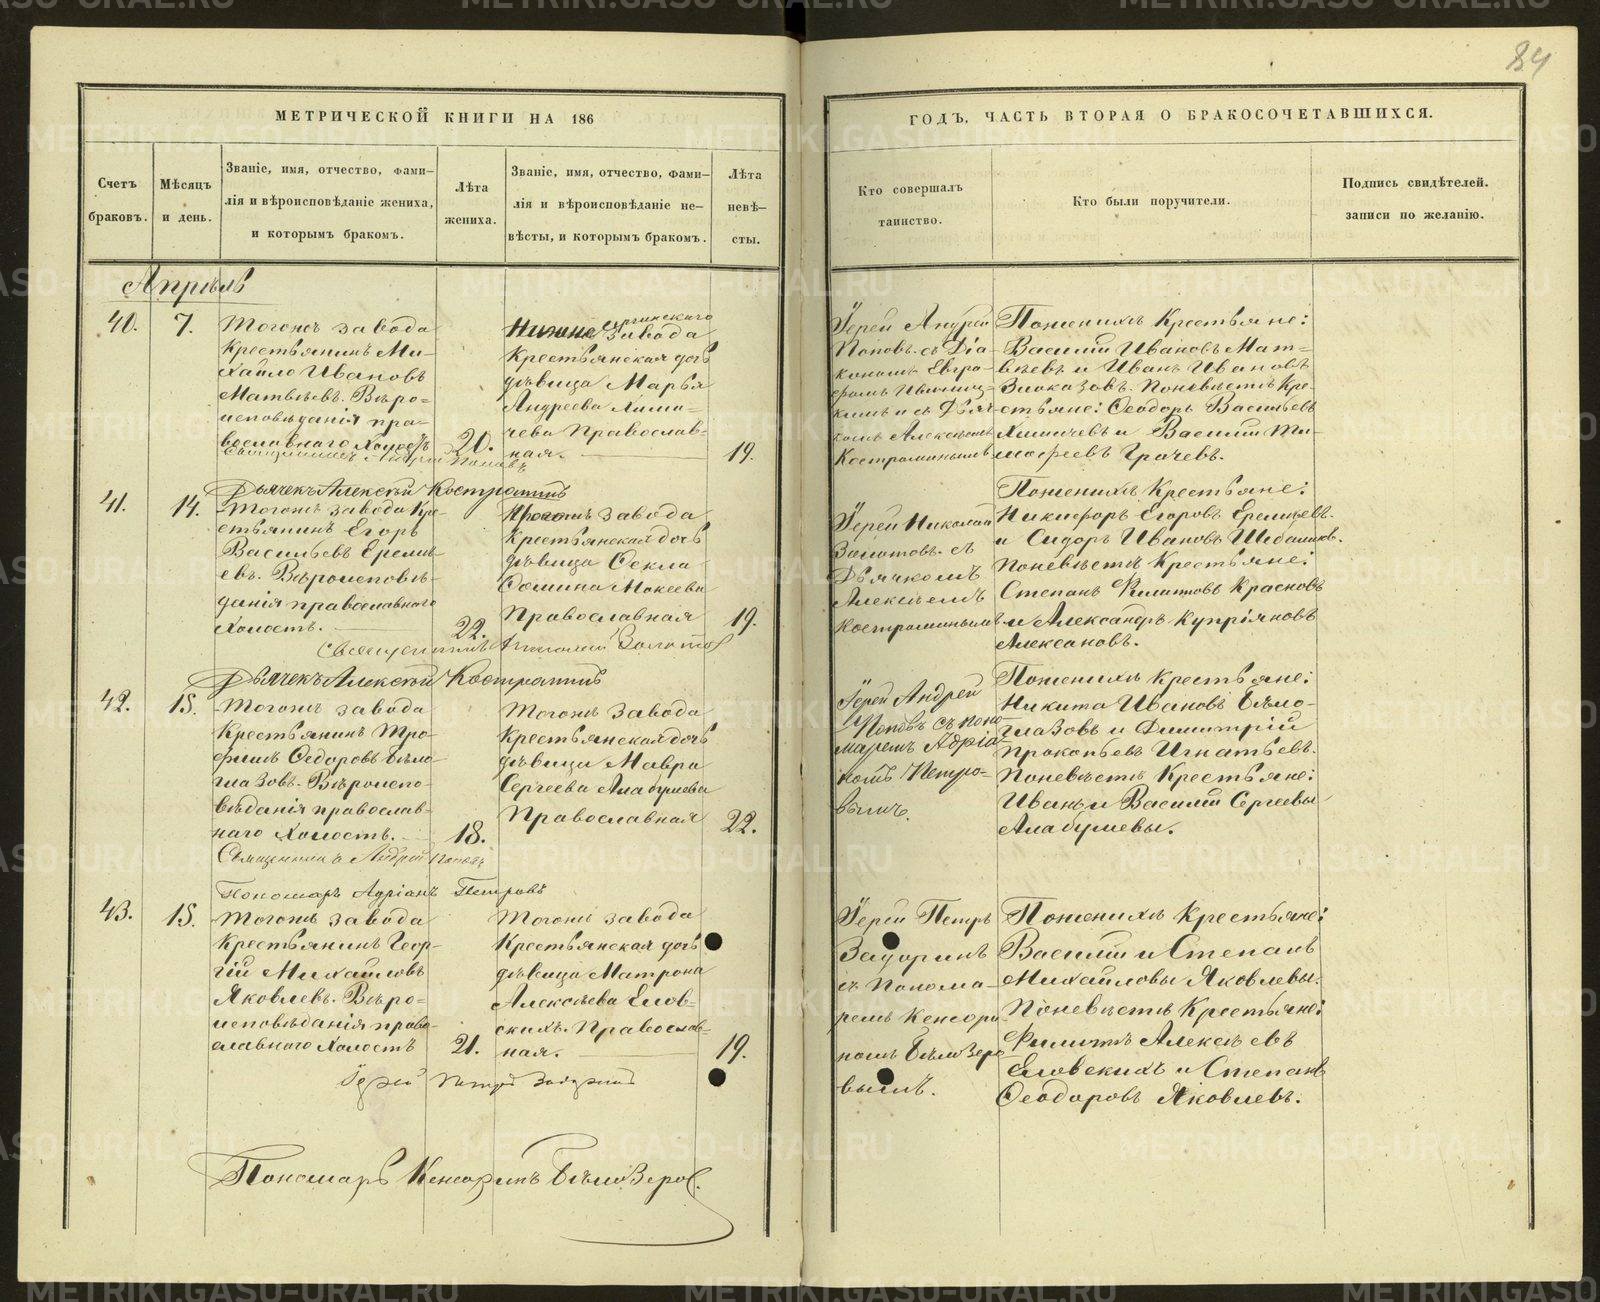 84
МЕТРИЧЕСКОЙ КНИГИ НА 186
ГОДЪ, ЧАСТЬ ВТОРАЯ О БРАКОСОЧЕТАВШИХСЯ.
Счетъ
браковъ.
Мѣсяцъ
и день.
Званіе, имя, отчество, фами-
лія и вѣроисповѣданіе жениха,
и которымъ бракомъ.
Лѣта
жениха.
Званіе, имя, отчество, фами-
лія и вѣроисповѣданіе не-
вѣсты, и которымъ бракомъ.
Лѣта
невѣ-
сты.
Кто совершалъ
таинство.
Кто были поручители.
Подпись свидѣтелей.
записи по желанію.
Апрѣль
40.
7.
Тогожъ завода
Крестьянинъ Ми-
хайло Ивановъ
Матвѣевъ. Вѣро-
исповѣданія пра-
вославнаго Холостъ
20.
завода
Крестьянская дочь
дѣвица Марья
Андреева Хими-
чева Православ-
ная.
19.
Іерей Андрей
Поповъ съ Діа-
кономъ
и съ Дьяч-
комъ Алексѣемъ
Костроминымъ
По женихѣ Крестьяне:
Василій Ивановъ Мат-
вѣевъ и Иванъ Ивановъ
Злоказовъ. По невѣстѣ Кре-
стьяне: Ѳеодоръ Васильевъ
Химичевъ и Василій Ти-
мофеевъ Грачевъ.
Священникъ Андрей Поповъ
Дьячекъ Алексѣй Костроминъ
41.
14.
Тогожъ завода Кре-
стьянинъ Егоръ
Васильевъ Еремѣ-
евъ. Вѣроисповѣ-
данія православнаго
Холостъ.
22.
Тогожъ завода
Крестьянская дочь
дѣвица Ѳекла
Ѳомина Мокеева
Православная
19.
Іерей Николай
Золотовъ съ
Дьячкомъ
Алексѣемъ
Костроминымъ
По женихѣ Крестьяне:
Никифоръ Егоровъ Еремѣевъ
и Сидоръ Ивановъ
По невѣстѣ Крестьяне:
Степанъ Филиповъ Красновъ
и Александръ Купріяновъ
Алексановъ.
Священникъ Николай Золотовъ
Дьячекъ Алексѣй Костроминъ
42.
15.
Тогожъ завода
Крестьянинъ Тро-
фимъ Ѳедоровъ Бѣло-
глазовъ. Вѣроиспо-
вѣданія православ-
наго Холостъ.
18.
Тогожъ завода
Крестьянская дочь
дѣвица Мавра
Сергеева Алабушева
Православная
22.
Іерей Андрей
Поповъ съ поно-
маремъ Адріа-
номъ Петро-
вымъ.
По женихѣ крестьяне:
Никита Ивановъ Бѣло-
глазовъ и Димитрій
Прокопьевъ Игнатьевъ.
По невѣстѣ Крестьяне:
Иванъ и Василій Сергеевы
Алабушевы.
Священникъ Андрей Поповъ
Пономарь Адріанъ Петровъ
43.
15.
Тогожъ завода
Крестьянинъ Геор-
гій Михайловъ
Яковлевъ. Вѣро-
исповѣданія право-
славнаго Холостъ
21.
Тогожъ завода
Крестьянская дочь
дѣвица Матрона
Алексѣева Елов-
скихъ. Православ-
ная.
19.
Іерей Петръ
Задоринъ
съ Понома-
ремъ Кенсори-
номъ Бѣлозеро-
вымъ.
По женихѣ Крестьяне:
Василій и Степанъ
Михайловы Яковлевы.
По невѣстѣ Крестьяне:
Филипъ Алексѣевъ
Еловскихъ и Степанъ
Ѳеодоровъ Яковлевъ.
Іерей Петръ Задоринъ
Пономарь Кенсоринъ Бѣлозеровъ.
METRIKI.GASO-URAL.RU